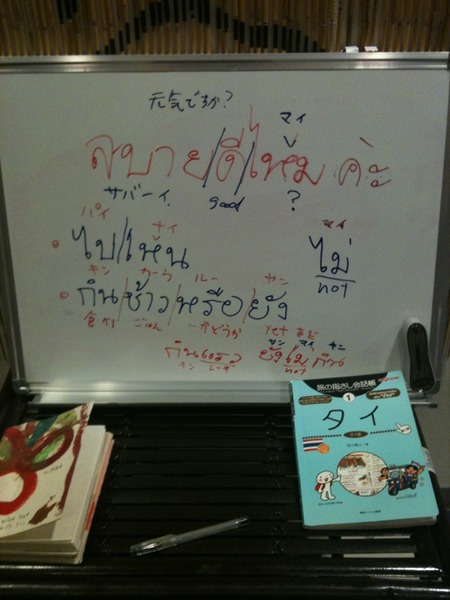 元気ですか?
マイ
สบาย/ดี/ไหม ค่ะ
サバーイ good ?
パイ ナイ マイ
ไป/ไหน ไม่
not
キン カーウ ルー ヤン
กิน/ข้าว/หรือ/ยัง
食べ ごはん かどうか yet まだ
ヤン マイ キン
กินแล้ว ยังไม่กิน
キン レーオ not
旅の指さし会話帳
1
タイ
タイ語